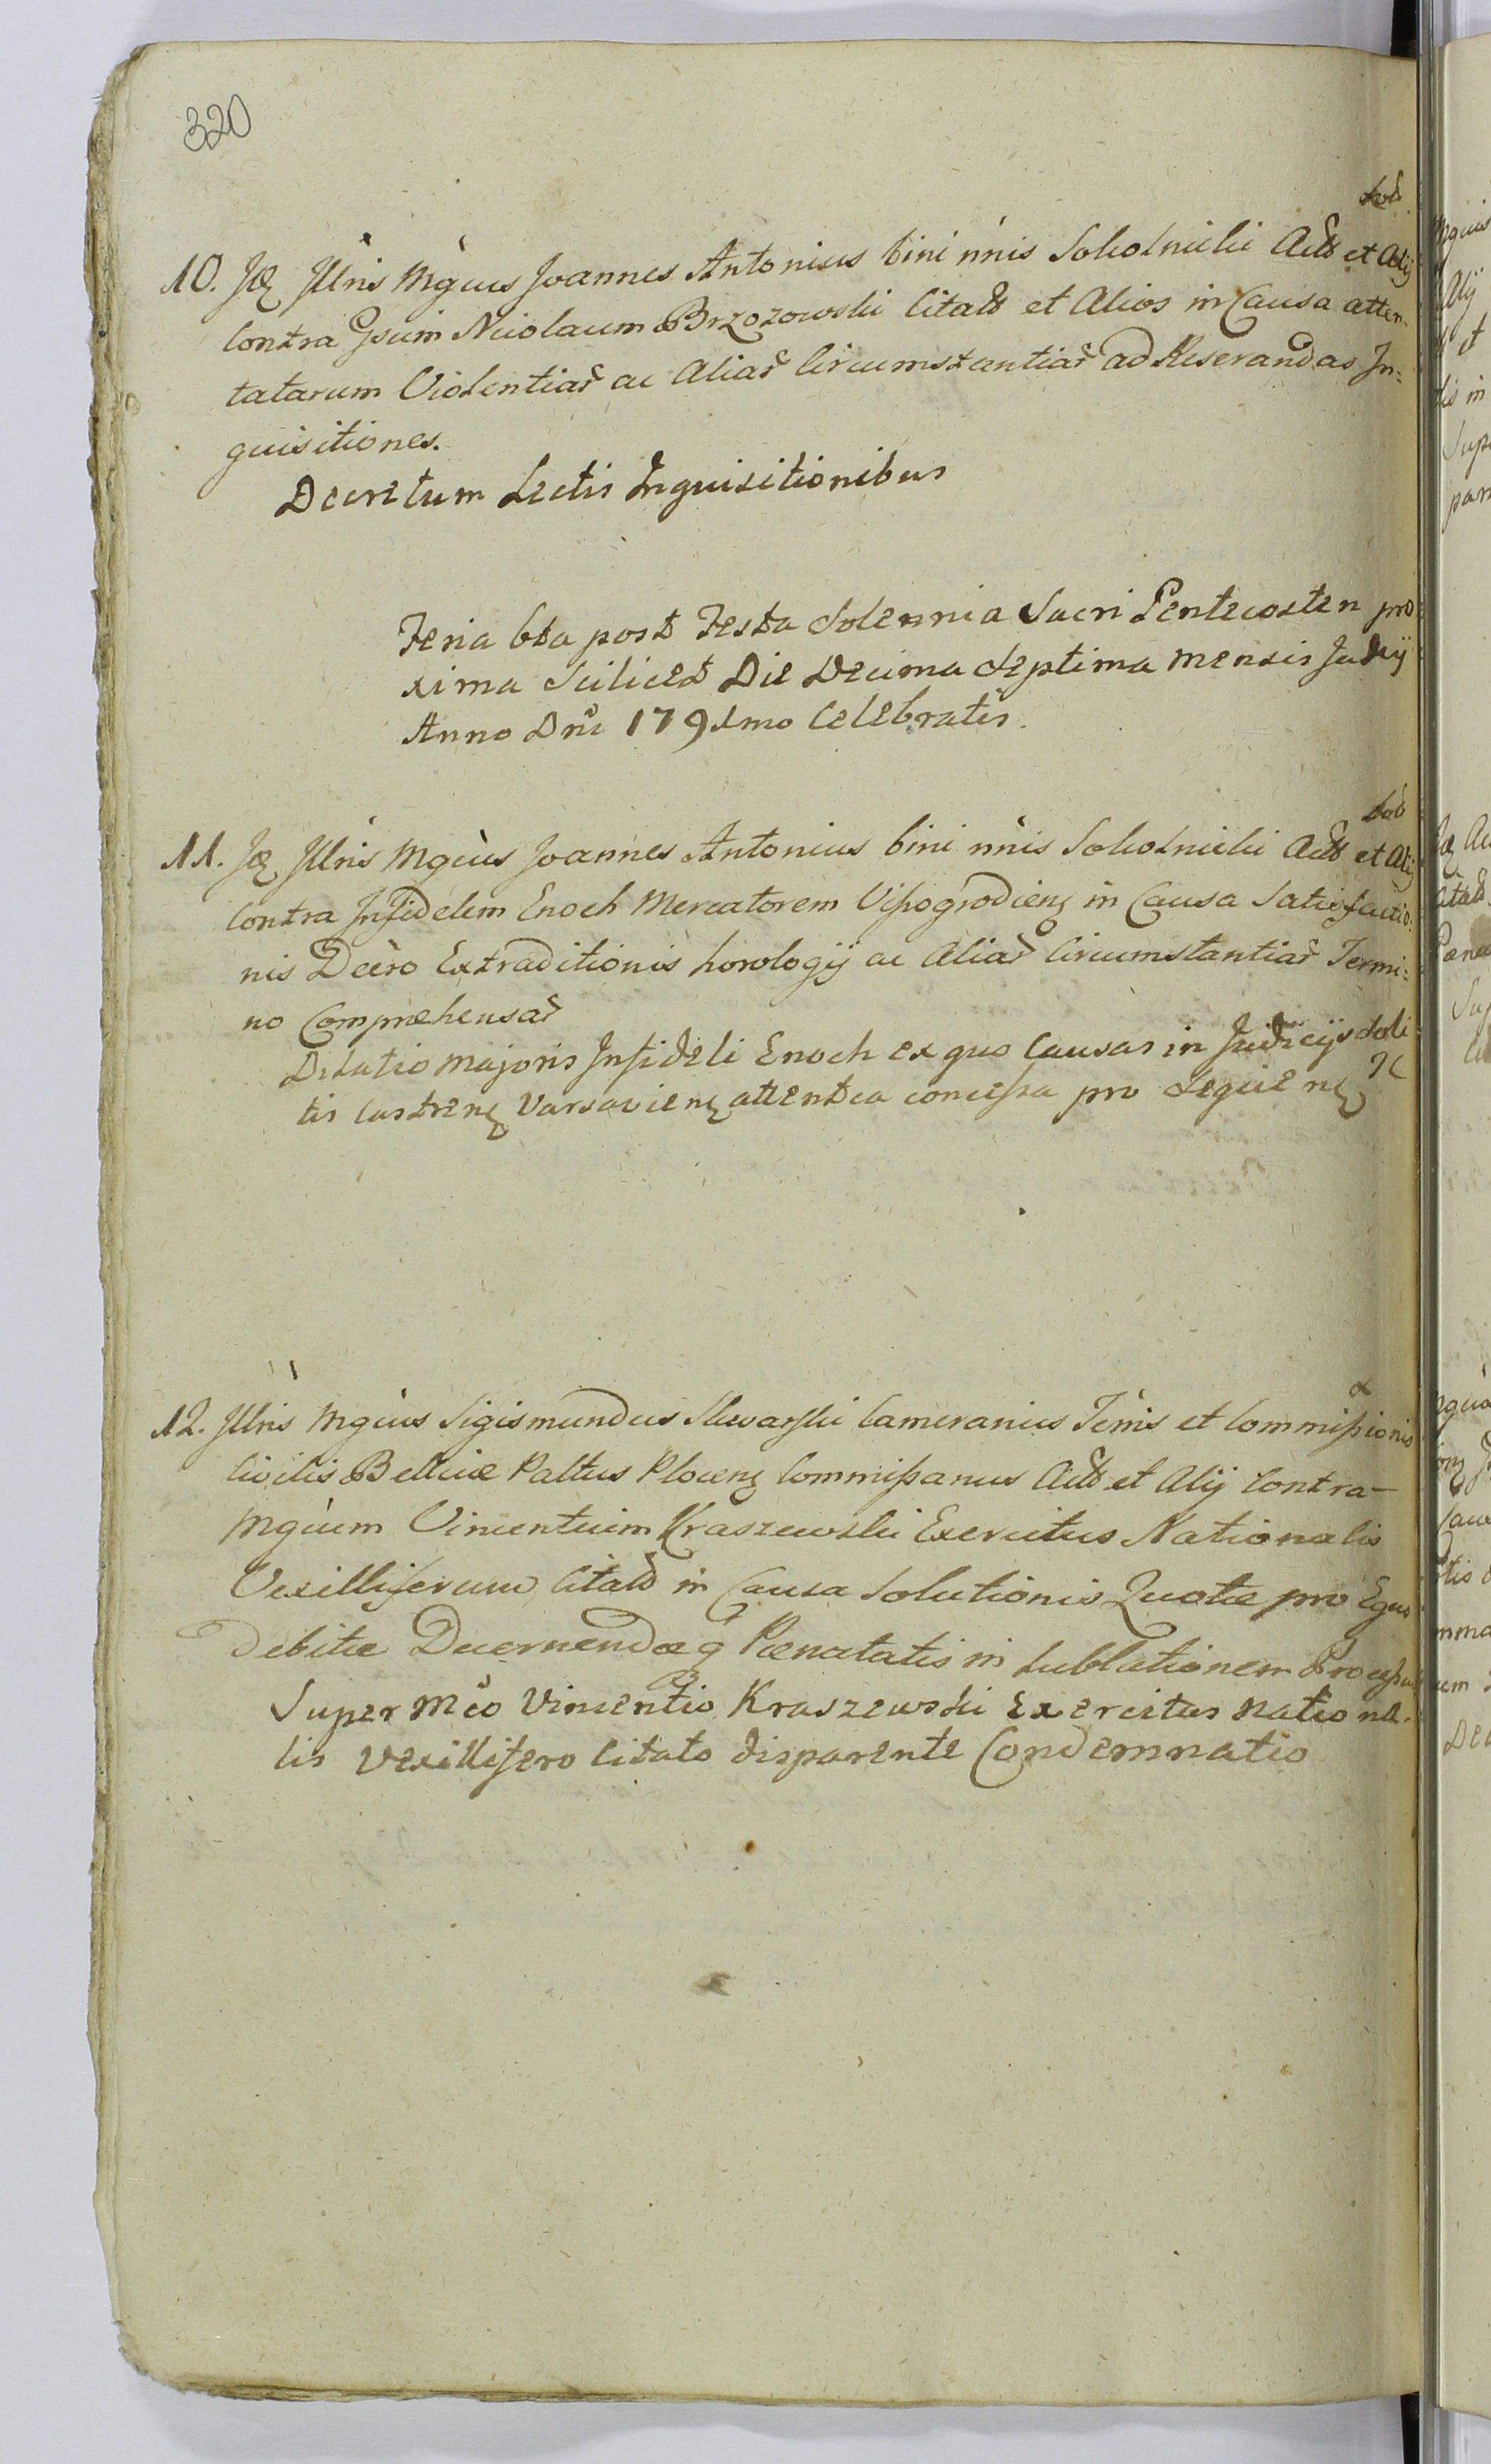 320
10. Jdẽ Jllris Mgcus Joannes Antonius bini nñis Sokolnicki Actõ et Alij
Contra Gsum Nicolaum Brzozowski Citatõ et Alios in Causa atten-
tatarum Violentiar̃ ac Aliar̃ Circumstantiar̃ ad Reserandas In=
quisitiones.
Decretum Lectis Inquisitionibus
Feria 6ta post Festa Solennia Sacri Pentecosten pro
xima Scilicet Die Decima Septima mensis Junij
Anno Dni 1791mo Celebratis.
11. Jdẽ Jllris Mgcus Joannes Antonius bini nñis Sokolnicki Actõ et Alij
Contra Infidelem Enoch Mercatorem Vißogrodienẽ in Causa Satisfactio=
nis Decro Extraditionis horologij ac Aliar̃ Circumstantiar̃ Termi=
no Comprehensar̃
Dilatio majoris Infideli Enoch ex quo Causas in Judicijs Soli
tis Castrenẽ Varsavienẽ attentca concessa pro Sequenẽ
12. Jllris Mgcus Sigismundus Camerarius Terris et Commißionis
Civilis Bellicæ Paltus Plocenẽ Commißarius Actõ et Alij Contra-
Mgcum Vincentium Kraszewski Exercitus Nationalis
Vexilliferum Citatõ in Causa Solutionis Quotæ pro Equo
Debitæ Decernendæq Pœnalitatis in Sublationem Proceßus
Super Mco Vincentio Kraszewski Exercitus Nationa-
lis Vexillifero Citato disparente Condemnatio